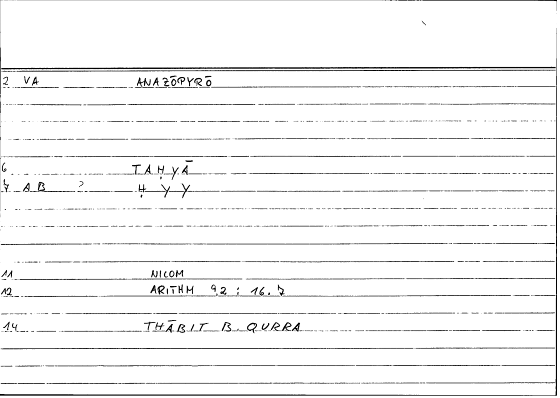 2 VA ANAZŌPYRŌ
6 TAḤYĀ
7 AB ? Ḥ Y Y
11 NICOM
12 ARITHM 92 : 16.7
14 THĀBIT B. QURRA